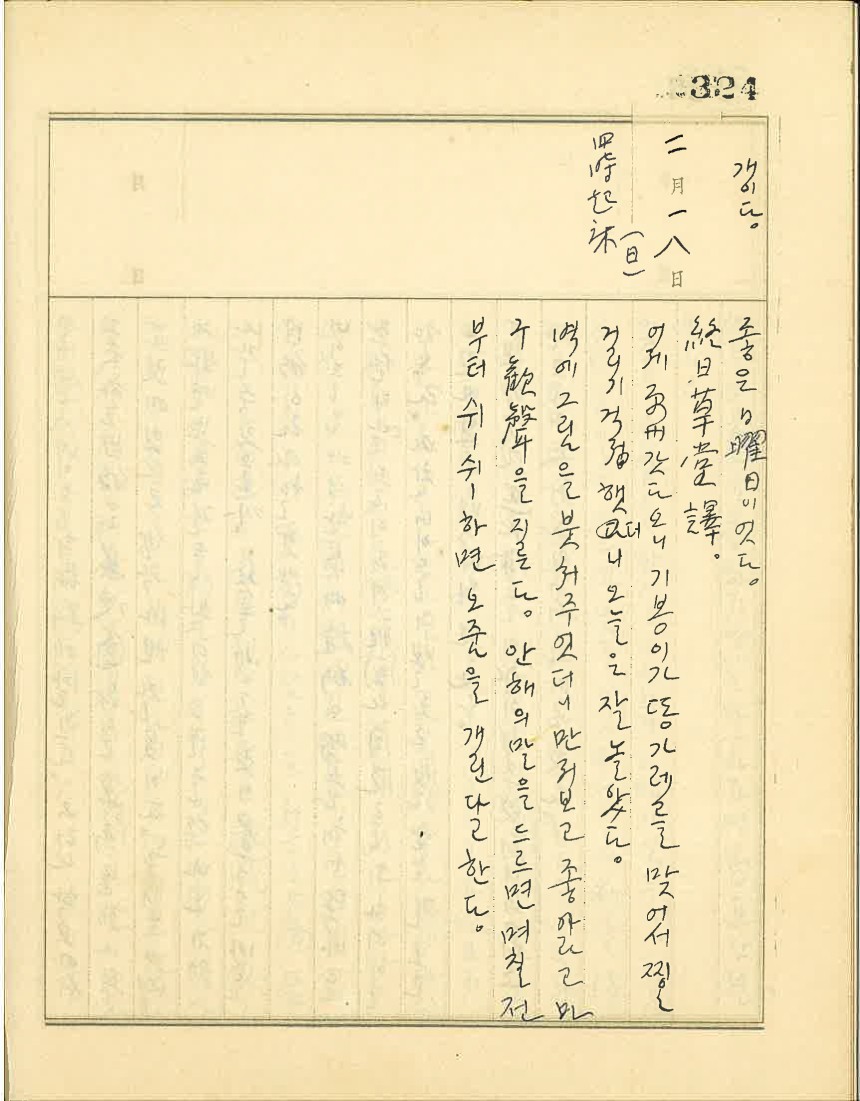 324
개이다。
二月一八日
(日)
四時起床
좋은 日曜日이엇다。
終日草堂譯。
어제 갓다오니 기봉이가 똥가레를 맞어서 찔
걱 햇더니 오늘은 잘 놀앗다。
벽에 그림을 붓처주엇더니 만저보고 좋아라고 마
구 歡聲을 지른다。 안해의 말을 드르면 며칠 전
부터 쉬ー쉬ー하면 오줌을 개린다고 한다。